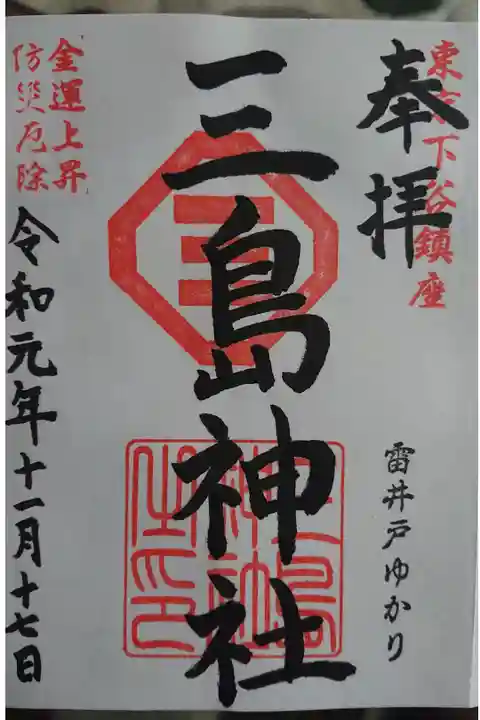 奉拝
東京下谷鎮座
雷井戸ゆかり
三島神社
三
三島神社之印
金運上昇
防災厄除
令和元年十一月十七日